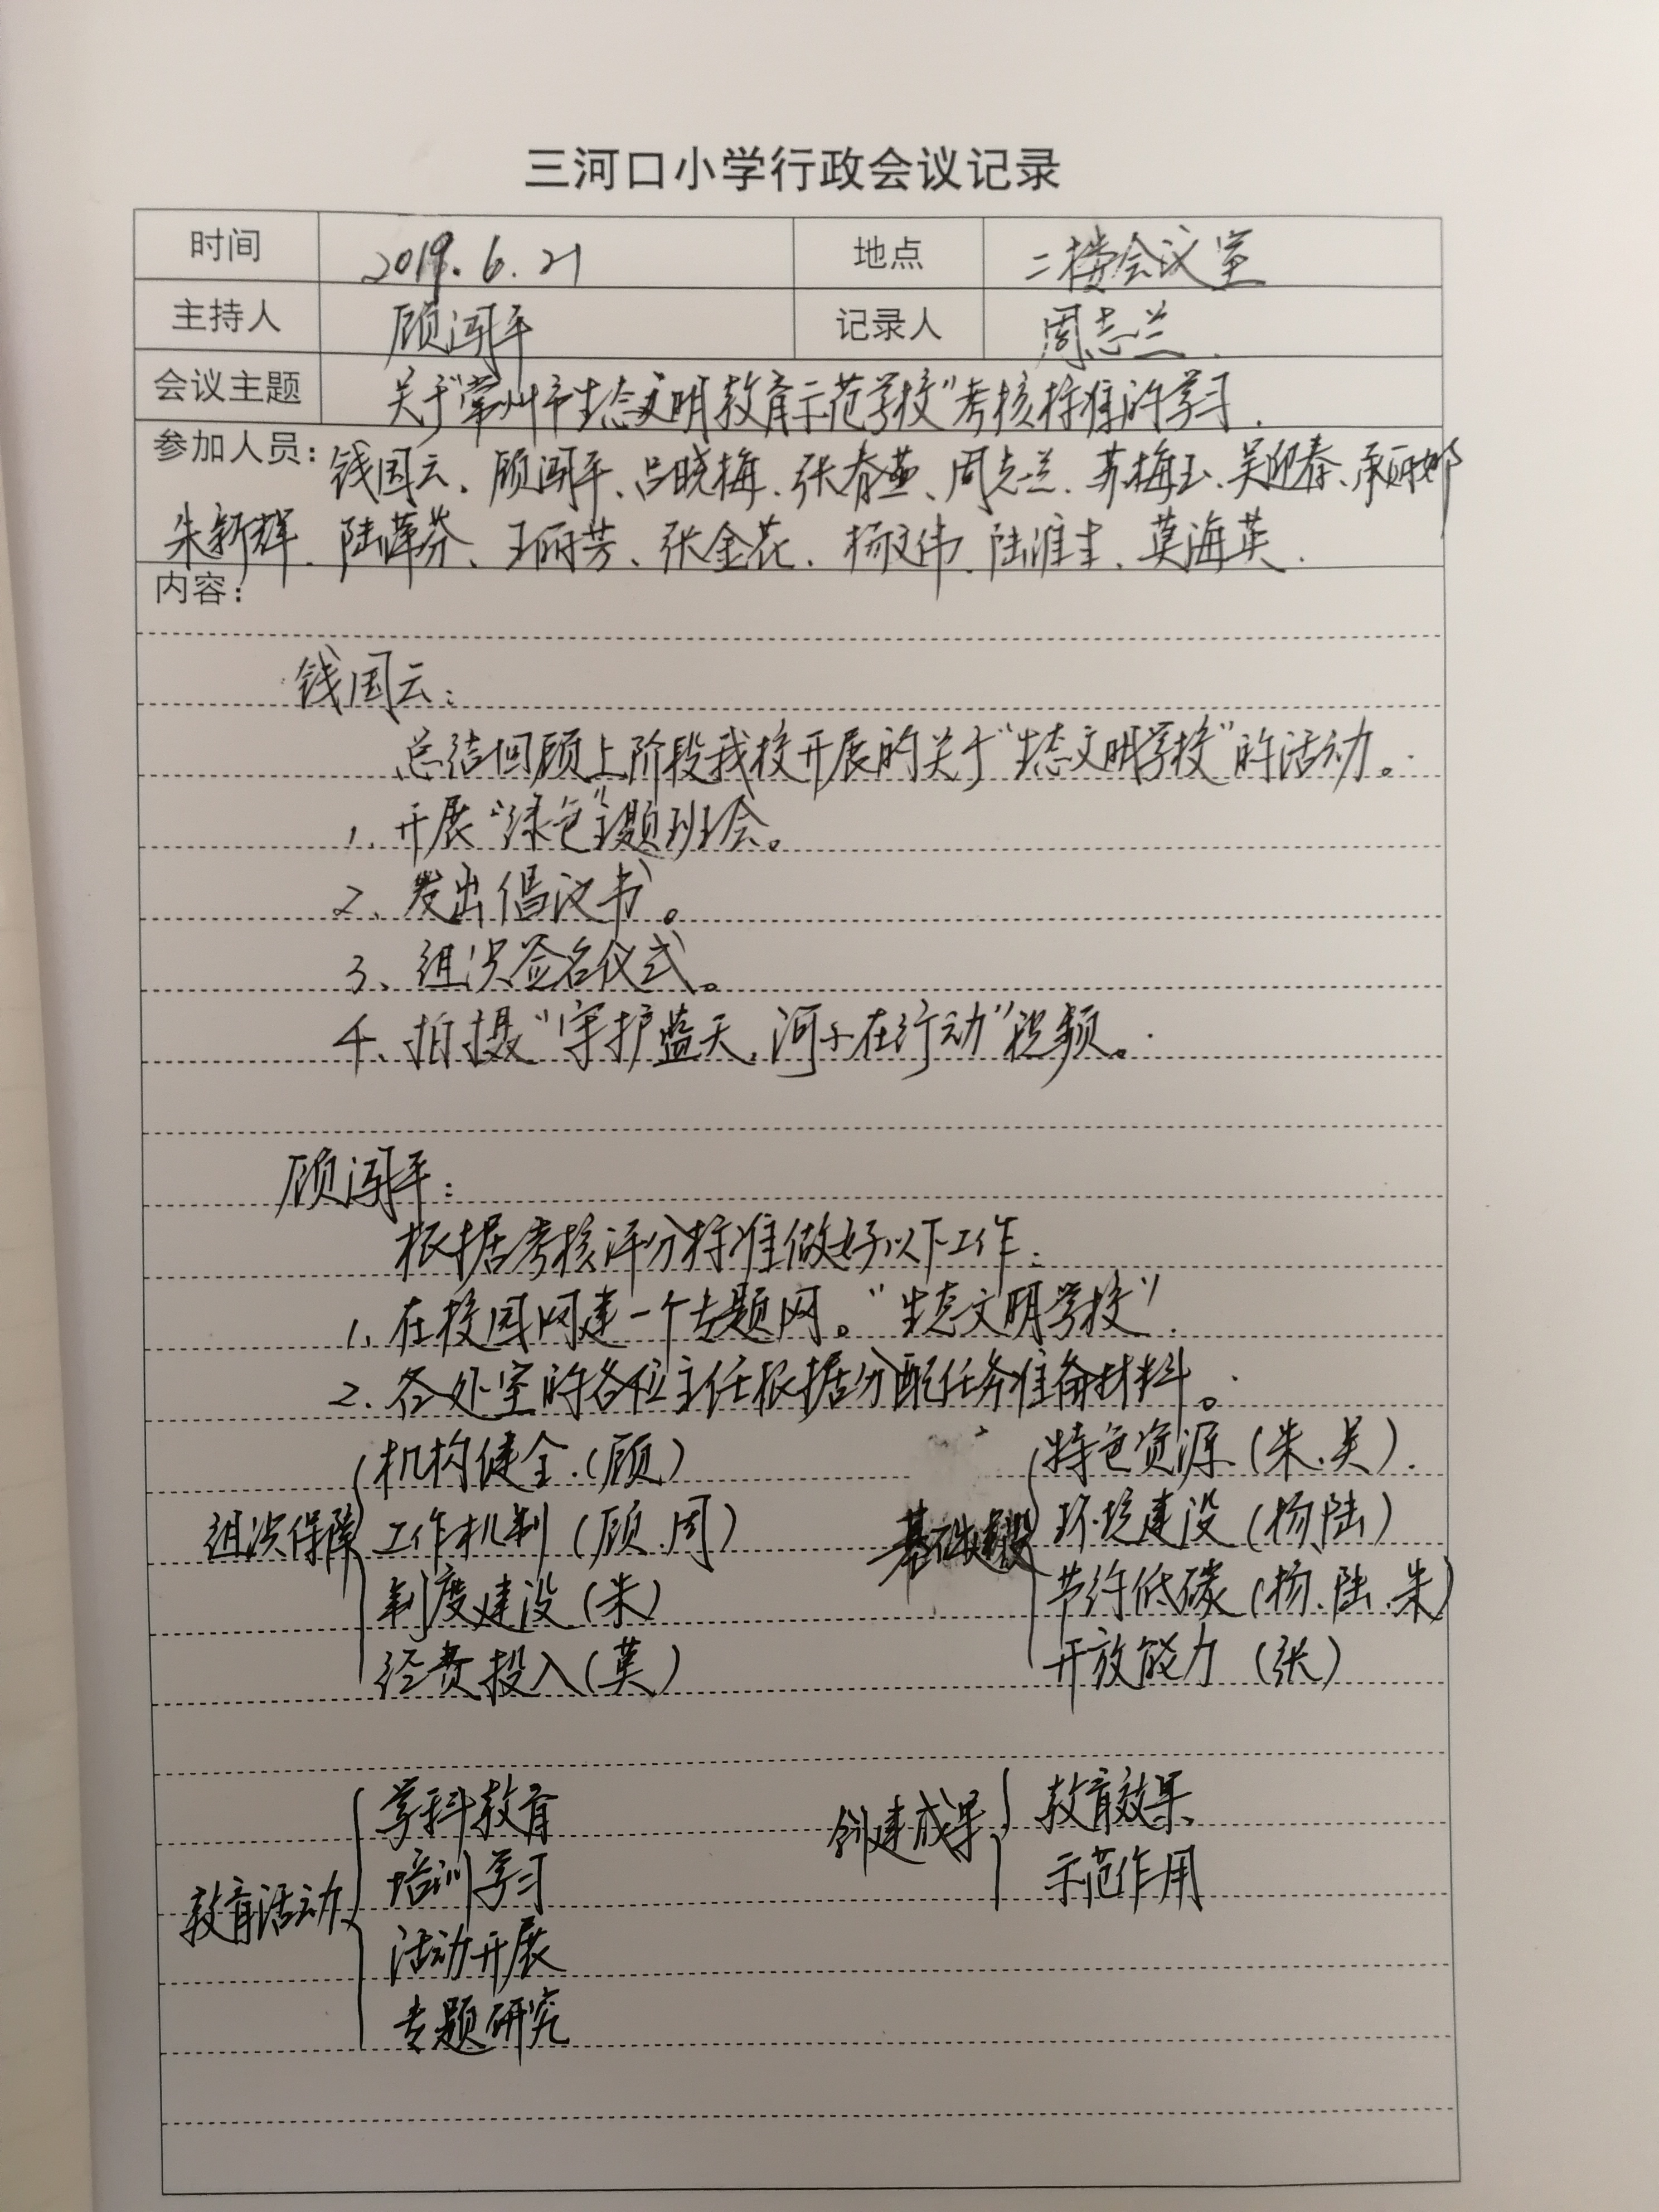 三河口小学行政会议记录
时间 2019.6.21 地点 二楼会议室
主持人 顾闯平 记录人 周志兰.
会议主题 关于“常州市生态文明教育示范学校”考核标准的学习.
参加人员: 钱国云、顾闯平、吕晓梅、张春燕、周志兰、苏梅玉、吴迎春、承丽娜
朱新辉、陆萍芬、王丽芳、张金花、杨文伟、陆淮丰、莫海英.
内容:
钱国云:
总结回顾上阶段我校开展的关于“生态文明学校”的活动。
1、开展“绿色”主题班会。
2、发出倡议书。
3、组织签名仪式。
4、拍摄“守护蓝天,河小在行动”视频。
顾闯平:
根据考核评分标准做好以下工作:
1、在校园网建一个专题网。“生态文明学校”.
2、各处室的各位主任根据分配任务准备材料。
机构健全.(顾) 特色资源.(朱.吴).
组织保障 工作机制(顾.周) 基础建设 环境建设(杨陆)
制度建设(朱) 节约低碳(杨.陆.朱)
经费投入(莫) 开放能力(张)
学科教育 创建成果 教育效果
培训学习 示范作用
教育活动
活动开展
专题研究